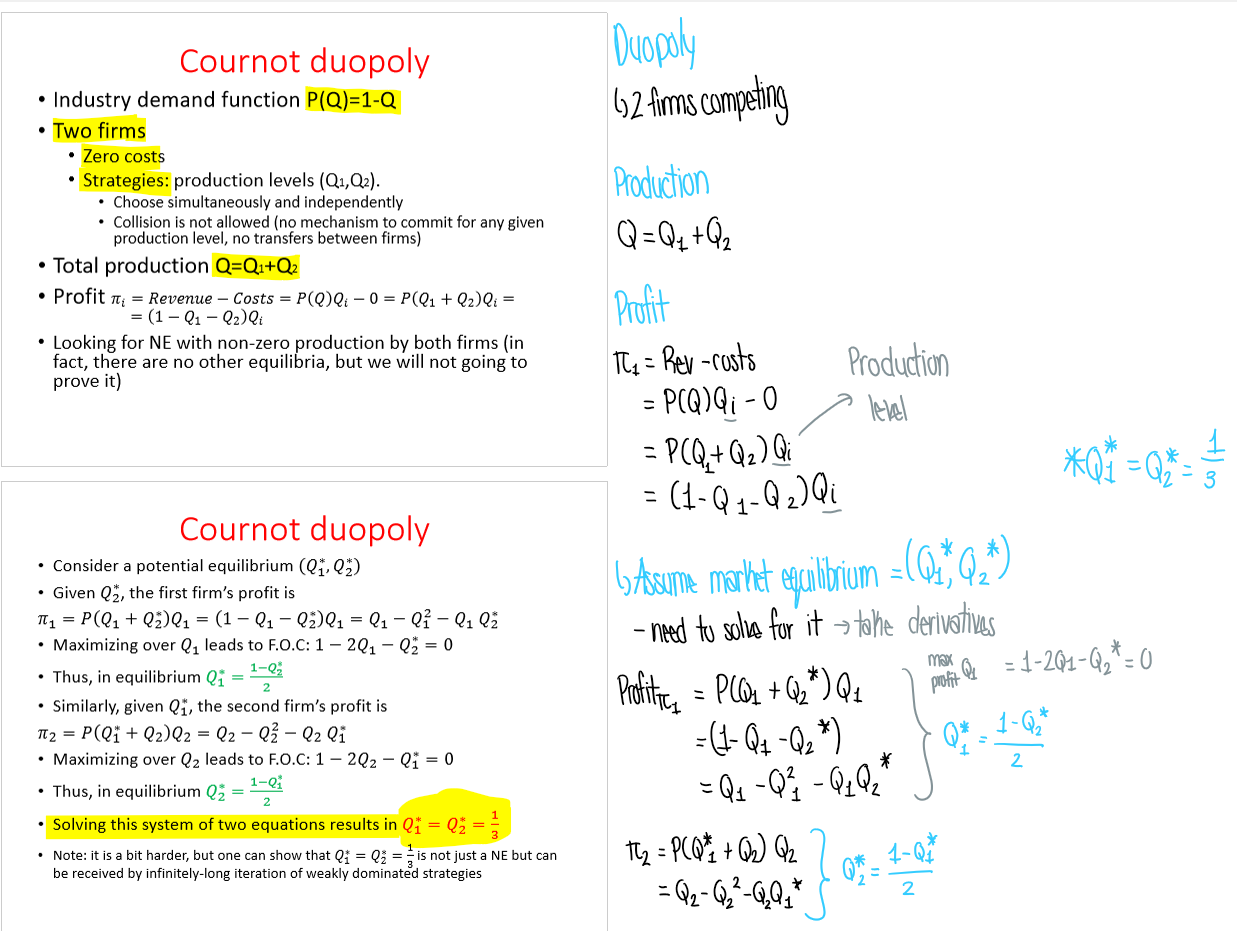 Cournot duopoly
• Industry demand function P(Q)=1-Q
• Two firms
• Zero costs
• Strategies: production levels (Q1,Q2).
• Choose simultaneously and independently
• Collision is not allowed (no mechanism to commit for any given
production level, no transfers between firms)
• Total production Q=Q1+Q2
• Profit πᵢ = Revenue − Costs = P(Q)Qᵢ − 0 = P(Q₁ + Q₂)Qᵢ =
= (1 − Q₁ − Q₂)Qᵢ
• Looking for NE with non-zero production by both firms (in
fact, there are no other equilibria, but we will not going to
prove it)
Cournot duopoly
• Consider a potential equilibrium (Q₁*, Q₂*)
• Given Q₂*, the first firm's profit is
π₁ = P(Q₁ + Q₂*)Q₁ = (1 − Q₁ − Q₂*)Q₁ = Q₁ − Q₁² − Q₁ Q₂*
• Maximizing over Q₁ leads to F.O.C: 1 − 2Q₁ − Q₂* = 0
• Thus, in equilibrium Q₁* = (1−Q₂*)/2
• Similarly, given Q₁*, the second firm's profit is
π₂ = P(Q₁* + Q₂)Q₂ = Q₂ − Q₂² − Q₂ Q₁*
• Maximizing over Q₂ leads to F.O.C: 1 − 2Q₂ − Q₁* = 0
• Thus, in equilibrium Q₂* = (1−Q₁*)/2
• Solving this system of two equations results in Q₁* = Q₂* = 1/3
• Note: it is a bit harder, but one can show that Q₁* = Q₂* = 1/3 is not just a NE but can
be received by infinitely-long iteration of weakly dominated strategies
Duopoly
↳ 2 firms competing
Production
Q = Q₁ + Q₂
Profit
π₁ = Rev - costs
= P(Q)Qi - 0
= P(Q₁ + Q₂) Qi
= (1 - Q₁ - Q₂) Qi
Production
level
*Q₁* = Q₂* = 1/3
↳ Assume market equilibrium = (Q₁*, Q₂*)
- need to solve for it → take derivatives
Profit π₁ = P(Q₁ + Q₂*) Q₁
= (1 - Q₁ - Q₂*)
= Q₁ - Q₁² - Q₁Q₂*
max
profit Q₁ = 1 - 2Q₁ - Q₂* = 0
Q₁* = (1 - Q₂*)/2
π₂ = P(Q₁* + Q₂) Q₂
= Q₂ - Q₂² - Q₂Q₁*
Q₂* = (1 - Q₁*)/2